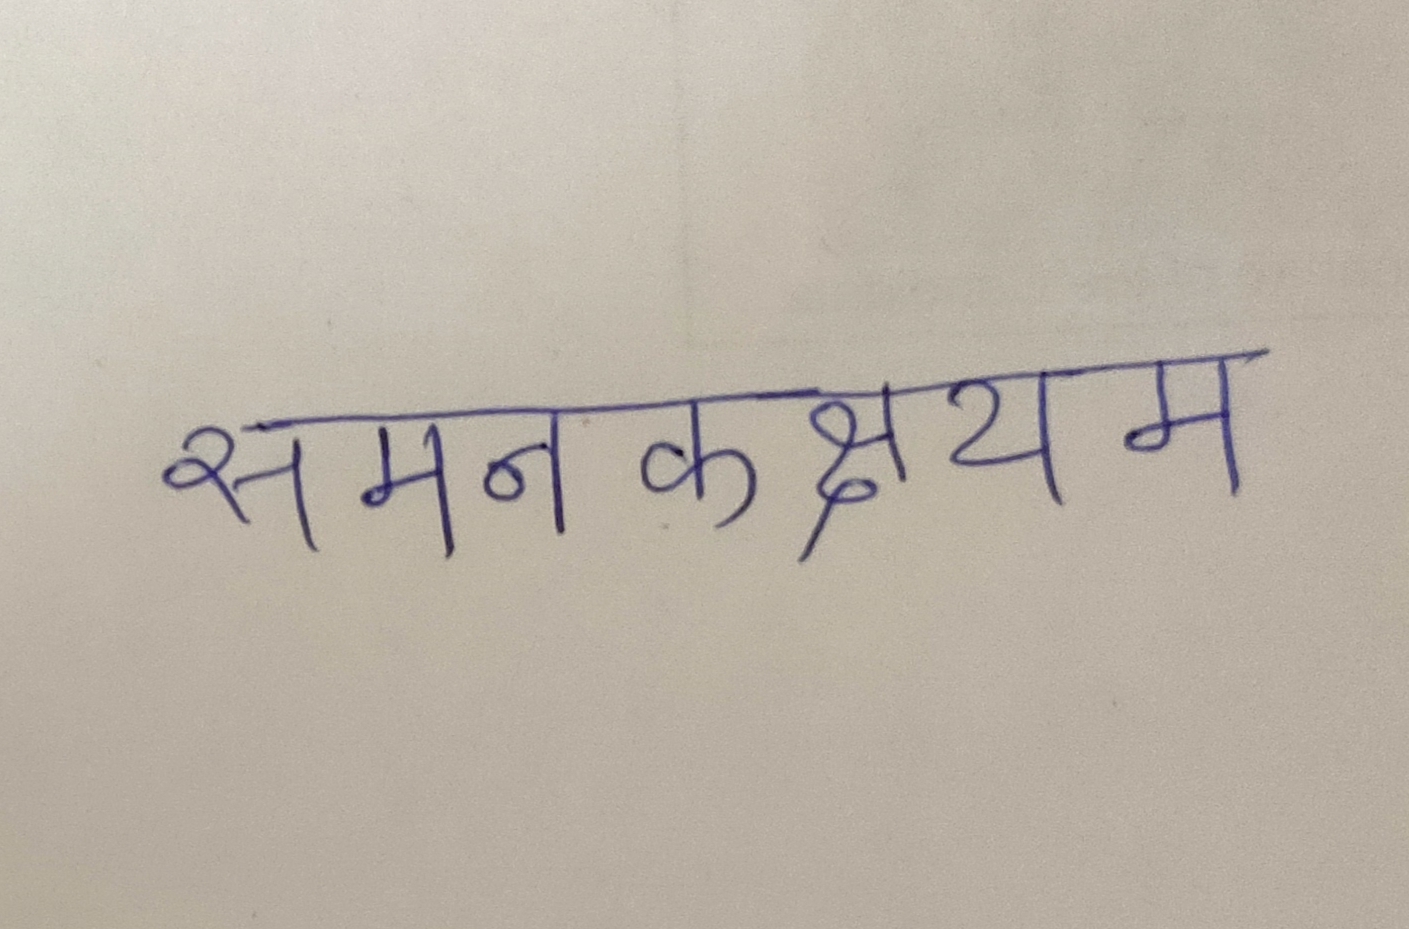 समनकक्षयम